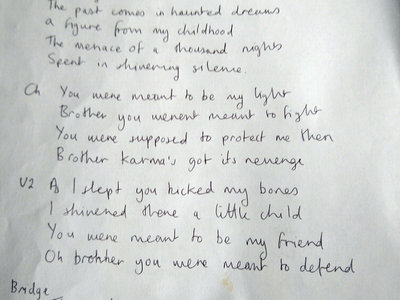 The past comes in haunted dreams
a figure from my childhood
The menace of a thousand nights
Spent in shivering silence.
Ch You were meant to be my light
Brother you werent meant to fight
You were supposed to protect me then
Brother Karma's got its revenge
V2 As I slept you kicked my bones
I shivered there a little child
You were meant to be my friend
Oh brohher you were meant to defend
Bridge